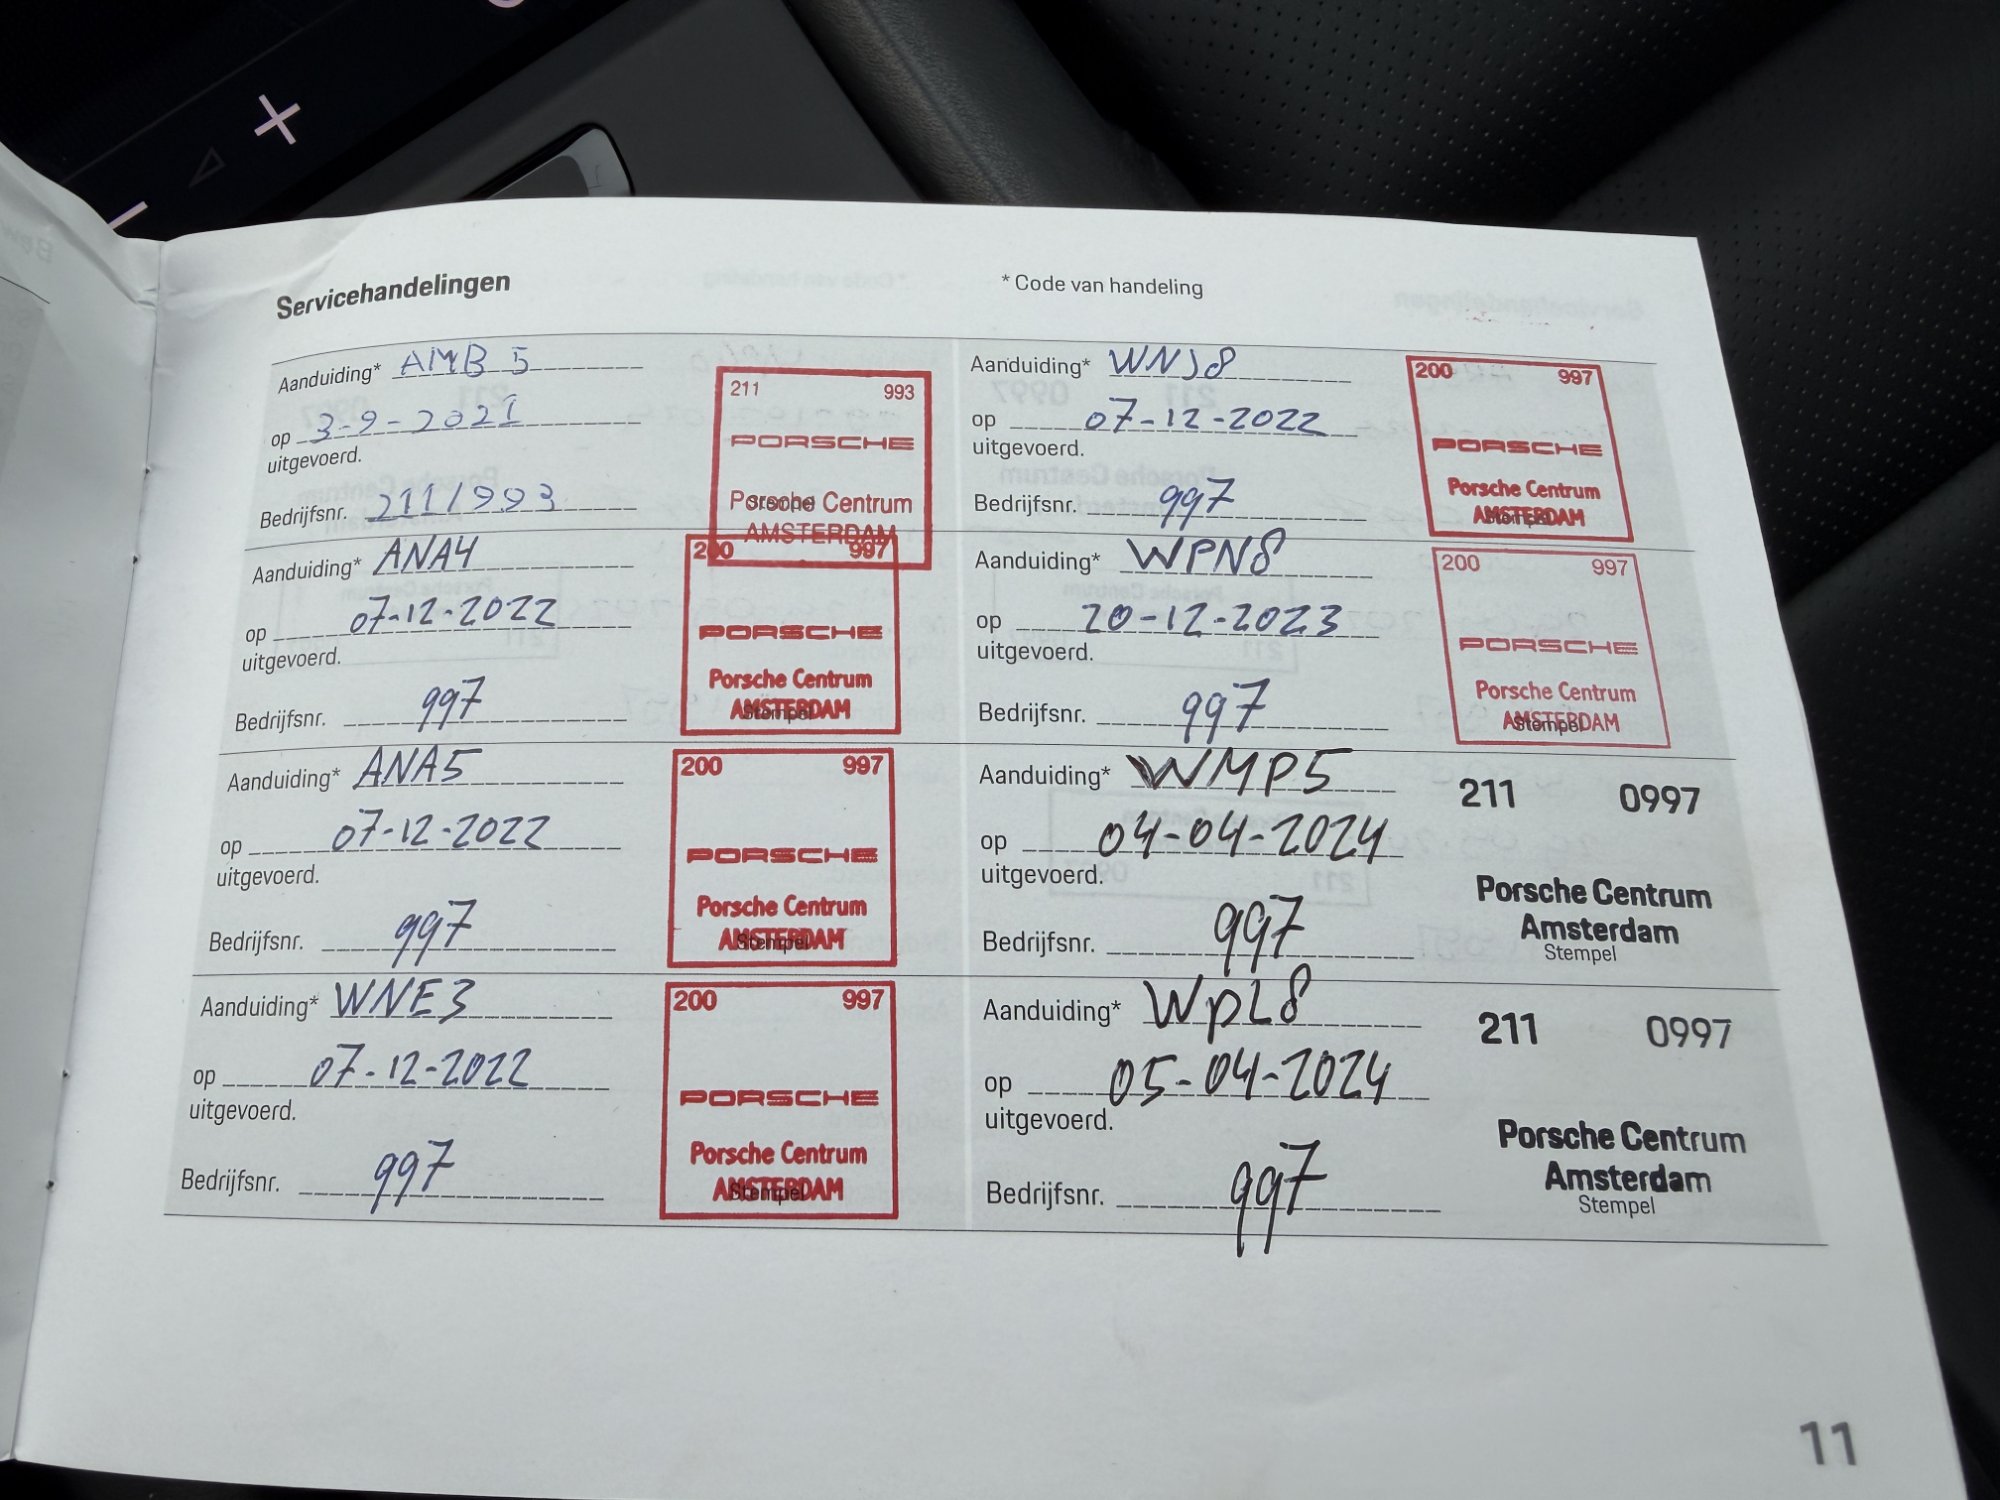 Servicehandelingen
* Code van handeling
Aanduiding* AMB 5
op 3-9-2021
uitgevoerd.
Bedrijfsnr. 211/993
211 993
PORSCHE
Porsche Centrum
AMSTERDAM
Stempel
Aanduiding* ANA4
op 07-12-2022
uitgevoerd.
Bedrijfsnr. 997
200 997
PORSCHE
Porsche Centrum
AMSTERDAM
Stempel
Aanduiding* ANA5
op 07-12-2022
uitgevoerd.
Bedrijfsnr. 997
200 997
PORSCHE
Porsche Centrum
AMSTERDAM
Stempel
Aanduiding* WNE3
op 07-12-2022
uitgevoerd.
Bedrijfsnr. 997
200 997
PORSCHE
Porsche Centrum
AMSTERDAM
Stempel
Aanduiding* WNJ8
op 07-12-2022
uitgevoerd.
Bedrijfsnr. 997
200 997
PORSCHE
Porsche Centrum
AMSTERDAM
Stempel
Aanduiding* WPN8
op 20-12-2023
uitgevoerd.
Bedrijfsnr. 997
200 997
PORSCHE
Porsche Centrum
AMSTERDAM
Stempel
Aanduiding* WMP5
op 04-04-2024
uitgevoerd.
Bedrijfsnr. 997
211 0997
Porsche Centrum
Amsterdam
Stempel
Aanduiding* WPL8
op 05-04-2024
uitgevoerd.
Bedrijfsnr. 997
211 0997
Porsche Centrum
Amsterdam
Stempel
11